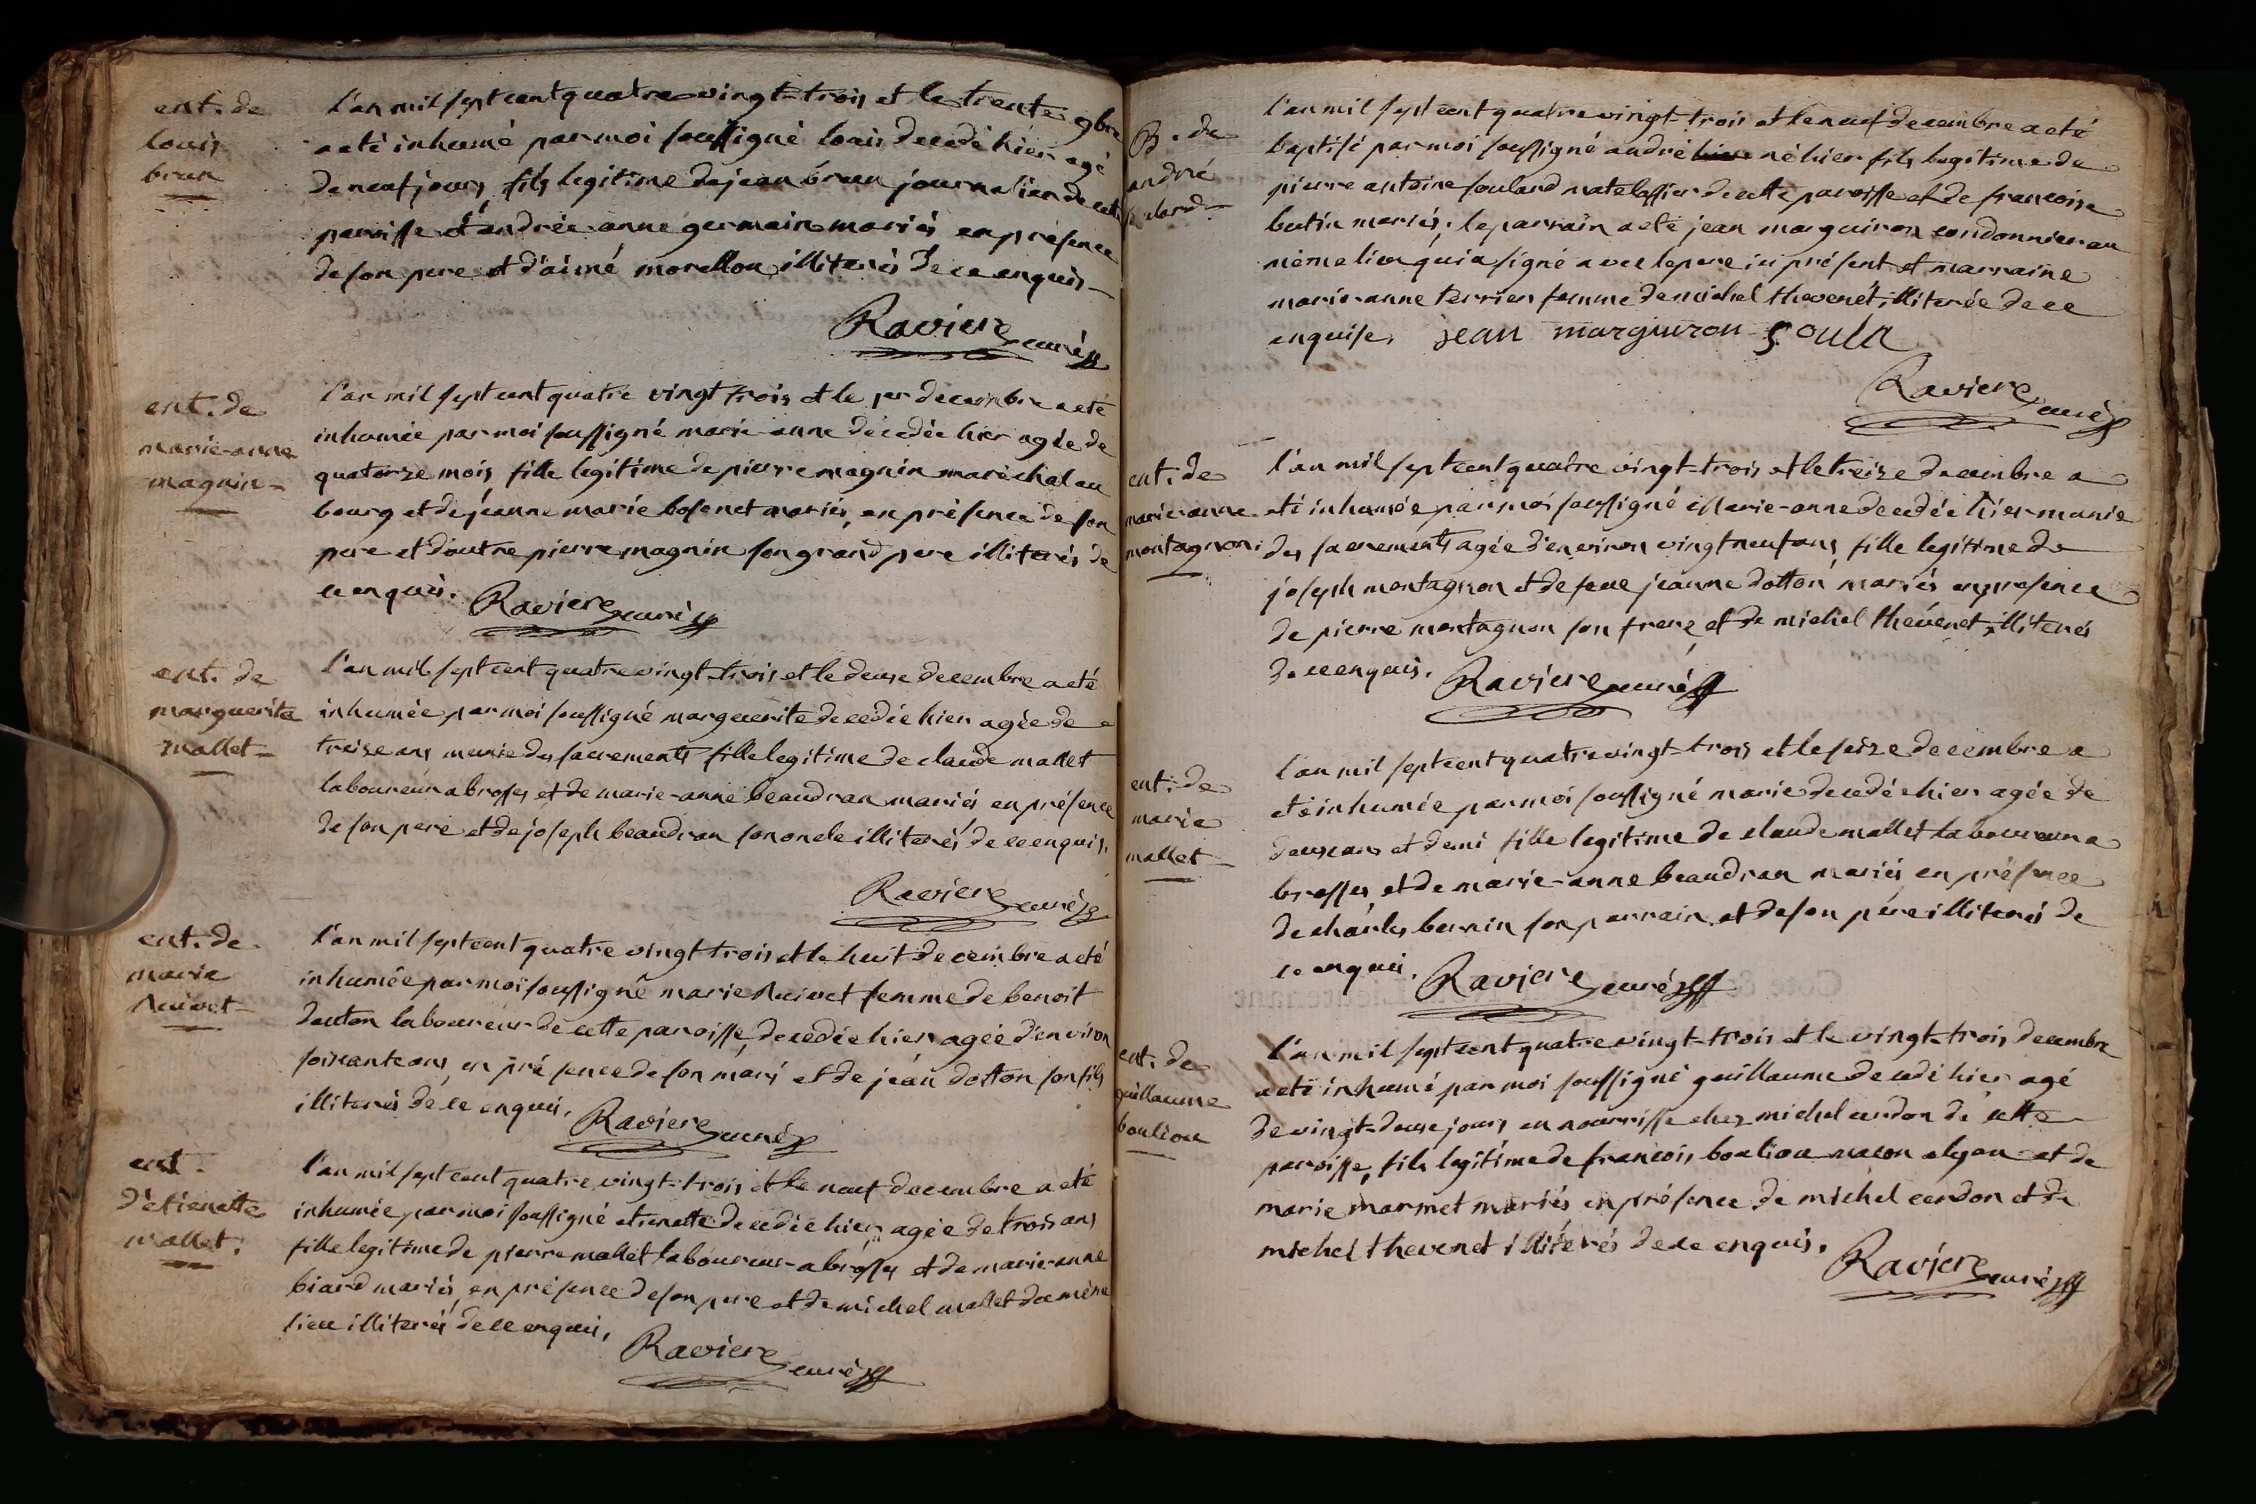 ent. de
louis
brun
l'an mil sept cent quatre vingt-trois et le trente 9bre
a eté inhumé par moi soussigné louis decedé hier agé
de neuf jours, fils legitime de jean brun journalier de cette
paroisse et d'andrée anne germain mariés en présence
de son pere et d'aimé morellon illiterés de ce enquis
Raviere curé
ent. de
marie-anne
magnin
l'an mil sept cent quatre vingt trois et le per decembre a eté
inhumée par moi soussigné marie anne décedée hier agée de
quatorze mois, fille legitime de pierre magnin maréchal au
bourg et de jeanne marie bosenet mariés, en présence de son
pere et d'autre pierre magnin son grand pere illiterés de
ce enquis. Raviere curé
ent. de
marguerite
mallet
l'an mil sept cent quatre vingt-trois et le deuse decembre a eté
inhumée par moi soussigné marguerite decedée hier agée de
treize ans munie des sacrements fille legitime de claude mallet
laboureur a brosses et de marie-anne beaudran mariés en présence
de son pere et de joseph beaudran son oncle illiterés de ce enquis,
Raviere curé
ent. de
marie
Nuivet
l'an mil sept cent quatre vingt-trois et le huit decembre a eté
inhumée par moi soussigné marie Nuivet femme de benoit
douton laboureur de cette paroisse, decedée hier agée d'environ
soixante ans, en présence de son mari et de jean dotton son fils
illiterés de ce enquis. Raviere curé
ent.
d'étienette
mallet.
l'an mil sept cent quatre vingt-trois et le neuf decembre a eté
inhumée par moi soussigné etienette decedée hier, agée de trois ans
fille legitime de pierre mallet laboureur a brosses et de marie anne
biard mariés, en présence de son pere et de michel mallet du même
lieu illiterés de ce enquis,
Raviere curé
B. de
andré
soulard
l'an mil sept cent quatre vingt-trois et le neuf decembre a eté
baptisé par moi soussigné andré né hier fils legitime de
pierre antoine soulard matelassier de cette paroisse et de francoise
butin mariés; le parrain a eté jean marguiron cordonnier au
même lieu qui a signé avec le pere ici présent et marraine
marie anne terrier femme de michel thevenét, illiterée de ce
enquise, jean margiuron Soula
Raviere curé
ent. de
marie anne
montagnon
l'an mil sept cent quatre vingt-trois et le treize decembre a
eté inhumée par moi soussigné Marie-anne decedée hier munie
des sacrements agée d'environ vingt neuf ans, fille legitime de
joseph montagnon et de feue jeanne dotton mariés en presence
de pierre montagnon son frere et de michel thévenet, illiterés
de ce enquis. Raviere curé
ent. de
marie
mallet
l'an mil sept cent quatre vingt-trois et le seize decembre a
eté inhumée par moi soussigné marie decedée hier agée de
deux ans et demi fille legitime de claude mallet laboureur a
brosses, et de marie-anne beaudran mariés, en présence
de charles bernin son parrain et de son pére illiterés de
ce enquis. Raviere curé
ent. de
guillaume
bouliou
l'an mil sept cent quatre vingt-trois et le vingt-trois decembre
a eté inhumé par moi soussigné guillaume decedé hier agé
de vingt-deuse jours en nourrisse chez michel cendon de cette
paroisse, fils legitime de francois bouliou macon a lyon et de
marie marmet mariés en présence de michel cendon et de
michel thevenet illiterés de ce enquis.
Raviere curé